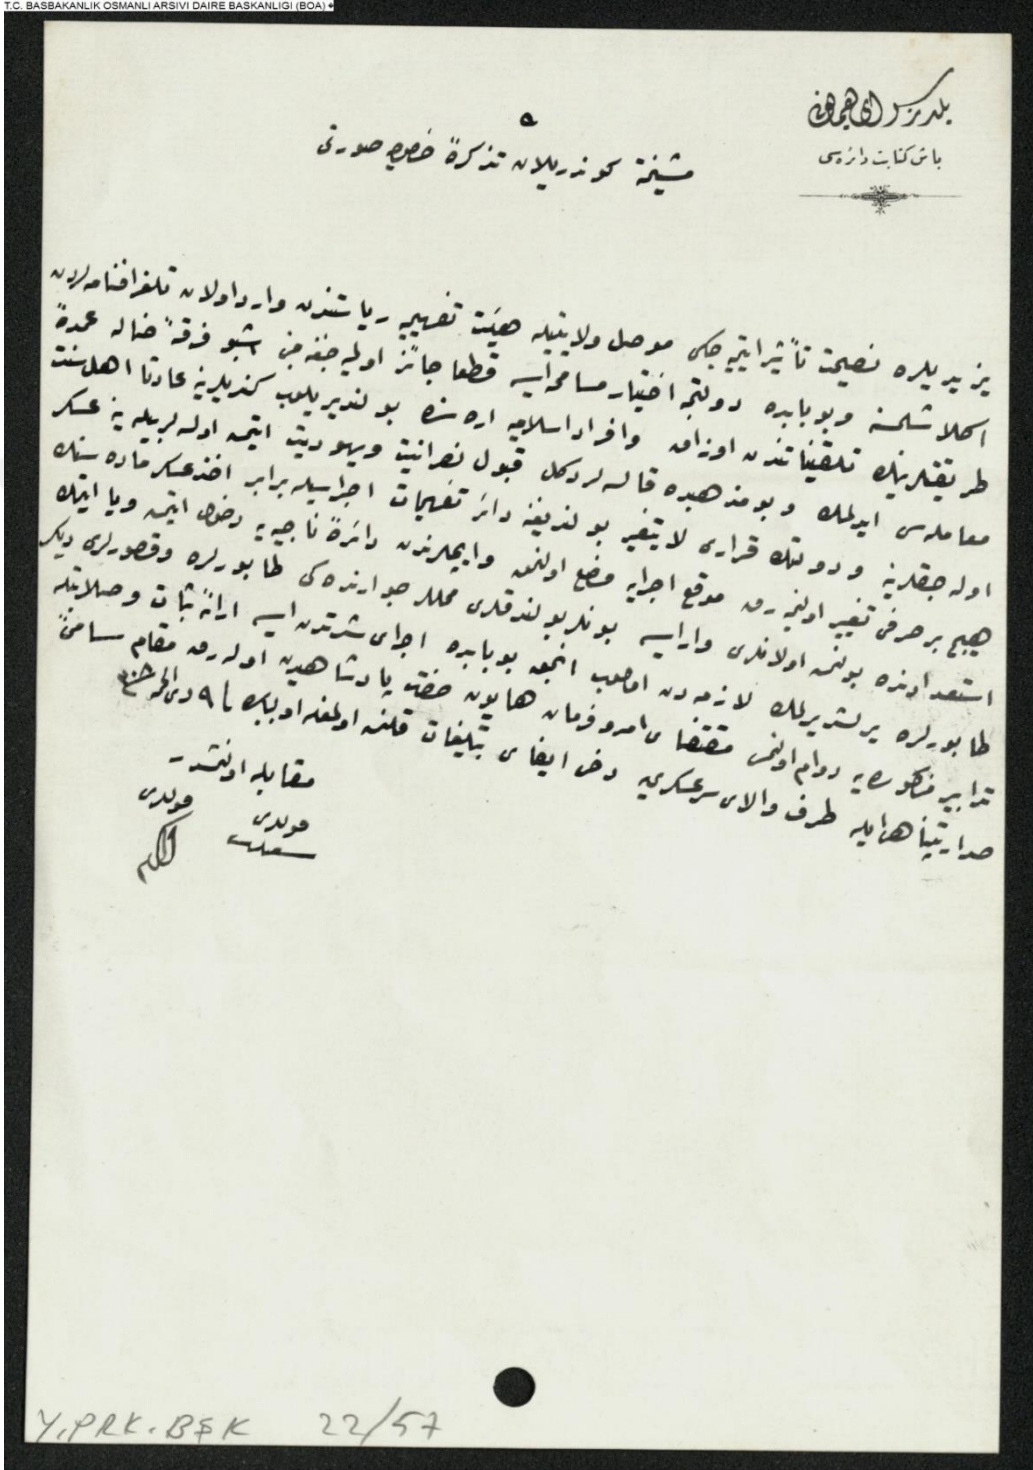 T.C. BASBAKANLIK OSMANLI ARSIVI DAIRE BASKANLIGI (BOA)
يلديز سراى همايونى
باش كتابت دائره سى
٥
مشيخته كوندريلان تذكرۀ خصوصيه صورتى
يزيديلره نصيحت تأثير ايتميه جكى موصل ولايتيله هيئت تفهيميه رياستندن وارد اولان تلغرافنامه لردن
اكلاشلمسنه وبوبابده دولتجه اختيار مسامحه ايسه قطعا جائز اوليه جغنه مبنى اشبو فرقۀ ضاله عمدۀ
طريقتلرينك تلقيناتندن اوزاق وافراد اسلاميه اره سنده بولنديريلوب كنديلرينه عادتا اهل سنت
معامله سى ايدلمك وبو مذهبده قاله لر دكل قبول نصرانيت ويهوديت ايتمش اوله لر بيله ينه عسكر
اوله جقلرينه ودولتك قرارى لايتغير بولنديغنه دائر تفهيمات اجراسيله برابر اخذ عسكر ماده سنك
هيچ بر حرفى تغيير اولنميه رق موقع اجرايه وضع اولنمق وايچلرندن دائرۀ ناجيه يه دخول ايتمش ويا ايتمك
استعدادنده بولنمش اولانلرى وار ايسه بونلر بولندقلرى محللر جوارنده كى طابورلره وقصورلرى ديكر
طابورلره يرلشديرلمك لازمه دن اولوب انجق بوبابده اجراى شدتدن ايسه ارائۀ ثبات وصلابتله
تدابير مذكوره يه دوام اولنمسى مقتضاى امر وفرمان همايون حضرت پادشاهيدن اوله رق مقام سامئ
صدارتپناهى ايله طرف والاى سرعسكرى يه دخى ايفاى تبليغات قلنمش اولمغله اولبابده ٩ ذى الحجه
مقابله اولنمشدر
قولرى
قولرى
Y.PRK.BŞK 22/57